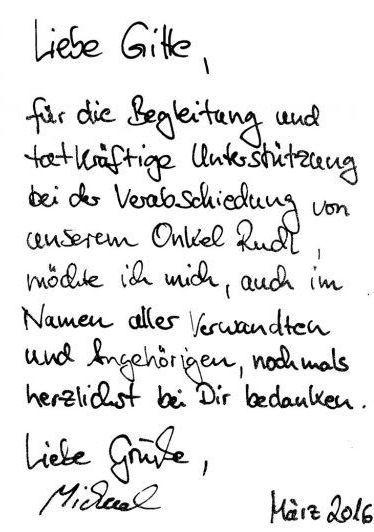 Liebe Gitte,
für die Begleitung und
tatkräftige Unterstützung
bei der Verabschiedung von
unserem Onkel Rudi,
möchte ich mich, auch im
Namen aller Verwandten
und Angehörigen, nochmals
herzlichst bei Dir bedanken.
Liebe Grüße,
Michael
März 2016